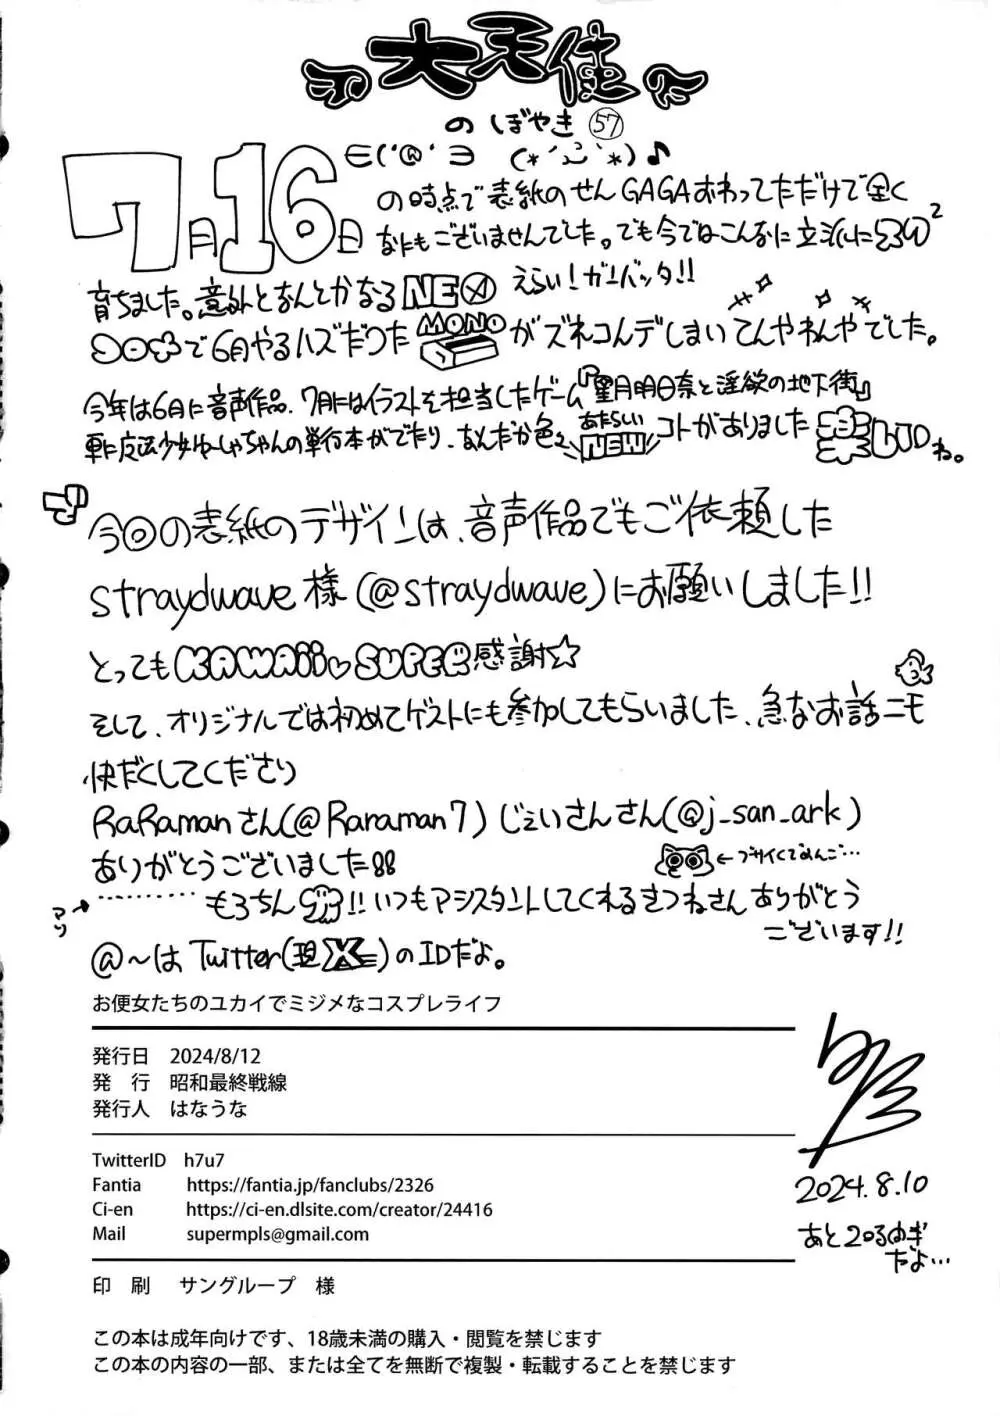 大天使
のぼやき 57
7月16日
の時点で表紙のせんGAGAおわってただけで全く
なにもございませんでした。でも今ではこんなに立派に
育ちました。意外となんとかなるNEO えらい!ガンバッタ!!
で6月やるハズだった MONO がズレコンデしまいてんやわんやでした。
今年は6月に音声作品、7月にはイラストを担当したゲーム『星月明日奈と淫欲の地下街』
更に 少女 ちゃんの単行本がでたり、なんだか色々 あたらしい NEW コトがありました ね。
今回の表紙のデザインは、音声作品でもご依頼した
straydwave様(@straydwave)にお願いしました!!
とってもKAWAII♡SUPER感謝☆
そして、オリジナルでは初めてゲストにも参加してもらいました、急なお話ニモ
快だくしてくださり
RaRamanさん(@Raraman7) じぇいさんさん(@j_san_ark)
ありがとうございました!!
←ブサイクでめんご…
アリ→ ………もろちん !! いつもアシスタントしてくれるきつねさんありがとう
ございます!!
@~はTwitter(現X)のIDだよ。
お便女たちのユカイでミジメなコスプレライフ
発行日 2024/8/12
発 行 昭和最終戦線
発行人 はなうな
TwitterID h7u7
Fantia https://fantia.jp/fanclubs/2326
Ci-en https://ci-en.dlsite.com/creator/24416
Mail supermpls@gmail.com
印 刷 サングループ 様
この本は成年向けです、18歳未満の購入・閲覧を禁じます
この本の内容の一部、または全てを無断で複製・転載することを禁じます
2024.8.10
あと
だよ…